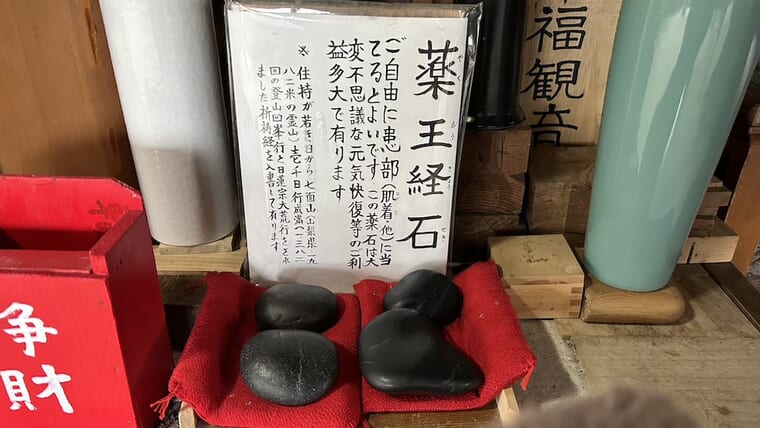 福観音
薬王経石
ご自由に患部(肌着、他)に当
てるとよいです。この薬石は大
変不思議な元気快復等のご利
益多大で有ります
※住持が若き日から七面山(山梨県一九
八二米の霊山)壱千日行成満(一三八二
回の登山回峯行と日蓮宗大荒行を
ました祈祷経を入書して有ります
浄財